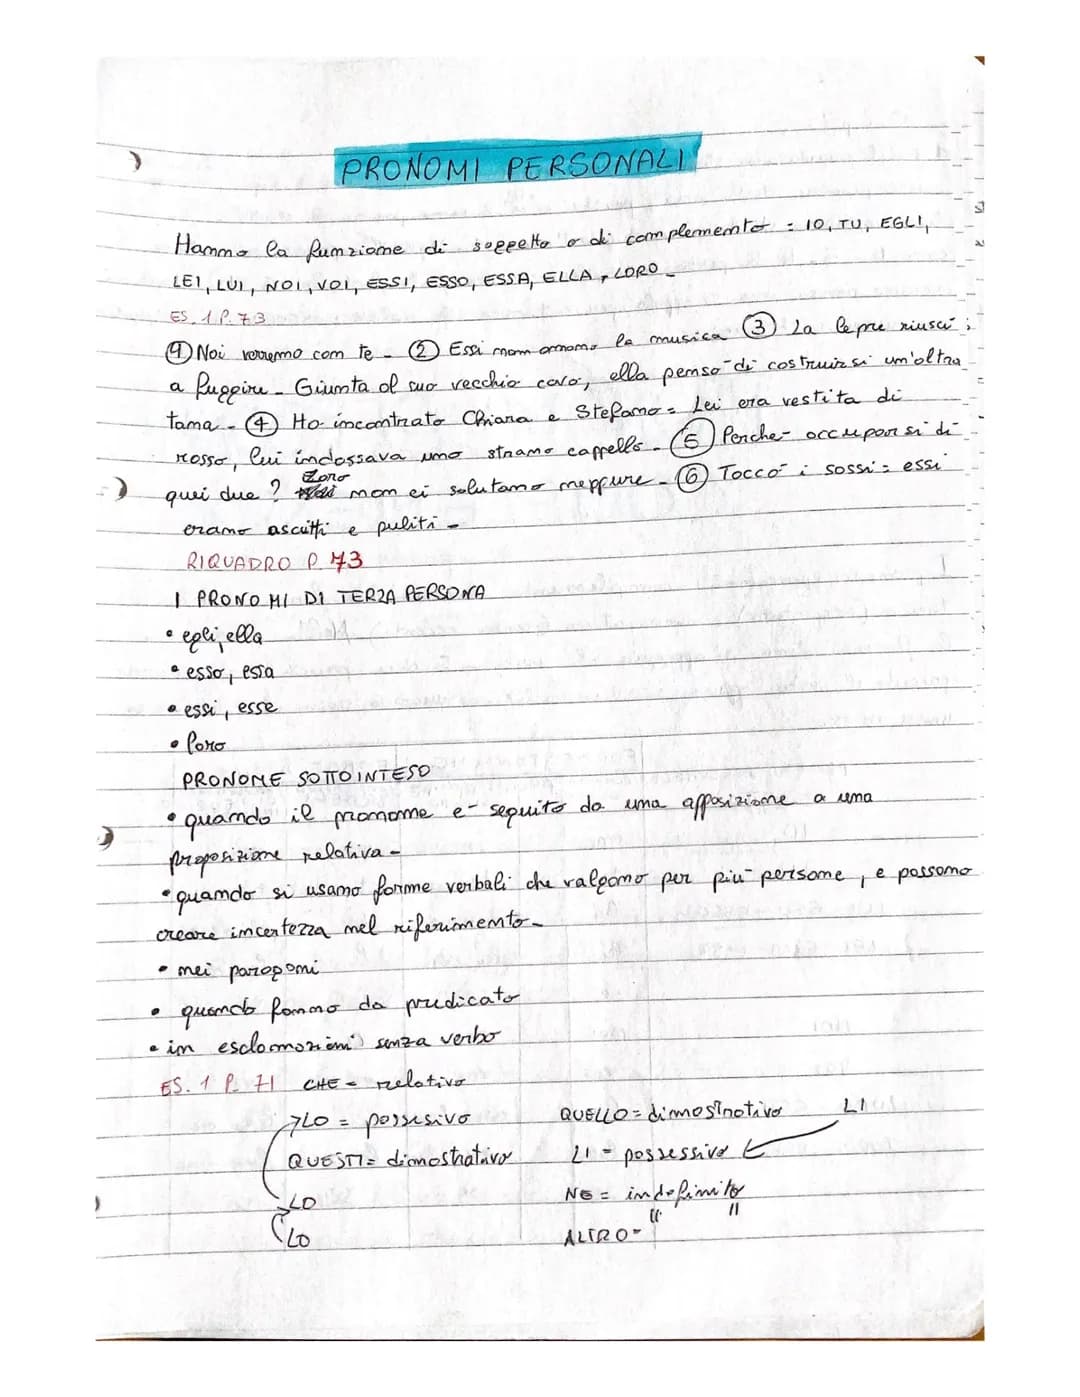 PRONOMI PERSONALI
Hanno la funzione di soggetto o di complemento : IO, TU, EGLI,
LEI, LUI, NOI, VOI, ESSI, ESSO, ESSA, ELLA, LORO
ES. 1 P. 73
① Noi verremo con te - ② Essi non amano la musica ③ La lepre riuscì
a fuggire - Giunta al suo vecchio covo, ella pensò di costruirsi un'altra
tana - ④ Ho incontrato Chiara e Stefano: Lei era vestita di
rosso, lui indossava uno strano cappello - ⑤ Perchè occuparsi di
quei due ? Loro non ci salutano neppure - ⑥ Toccò i sassi: essi
erano asciutti e puliti -
RIQUADRO P. 73
I PRONOMI DI TERZA PERSONA
• egli, ella
• esso, essa
• essi, esse
• loro
PRONOME SOTTOINTESO
• quando il pronome è seguito da una apposizione a una
proposizione relativa -
• quando si usano forme verbali che valgono per più persone, e possono
creare incertezza nel riferimento -
• nei paragoni
• quando fanno da predicato
• in esclamazioni senza verbo
ES. 1 P. 71 CHE = relativo
LO = possesivo QUELLO = dimostrativo LI
QUESTI = dimostrativo LI = possessivo
LO NE = indefinito
LO ALTRO = " "